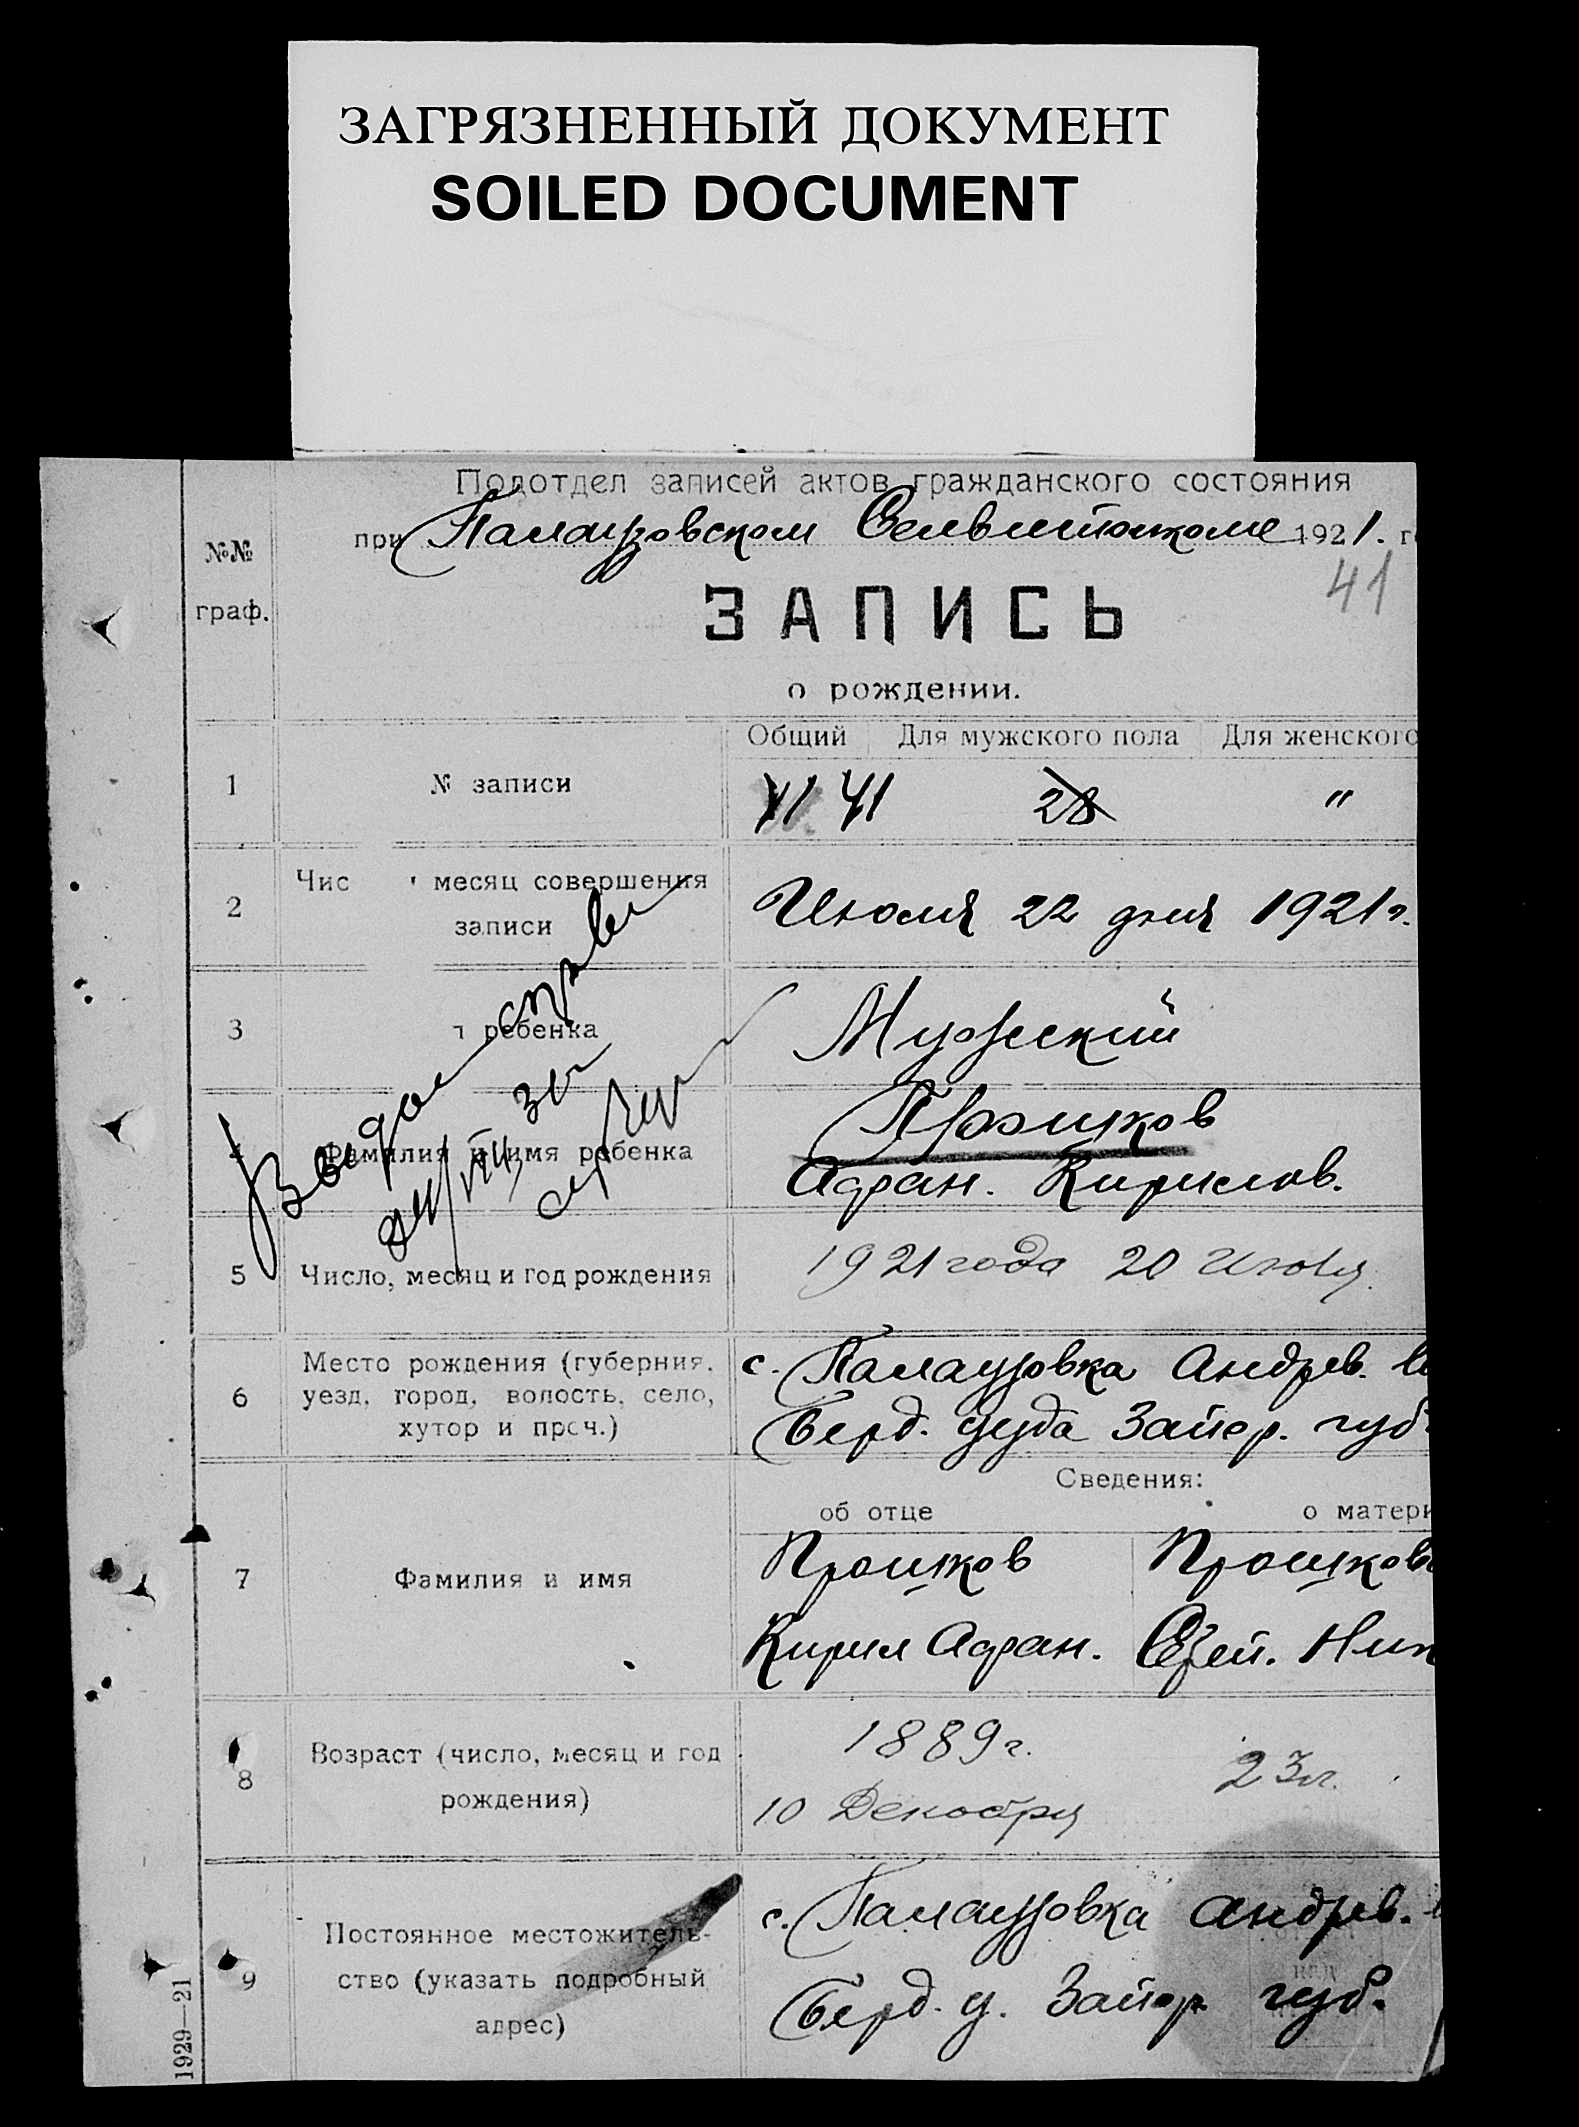 ЗАГРЯЗНЕННЫЙ ДОКУМЕНТ
SOILED DOCUMENT
Подотдел записей актов гражданского состояния
при Палаузовском 1921. г
№№
граф.
41
ЗАПИСЬ
о рождении.
Общий Для мужского пола Для женского
1 № записи 41 28 "
2 Чис месяц совершения
записи
Июля 22 дня 1921 г.
3 ребенка Мужский
Прошков
Фамилия и имя ребенка
Адриан. Кирилов.
5 Число, месяц и год рождения 1921 года 20 Июля
6 Место рождения (губерния,
уезд, город, волость, село,
хутор и проч.)
с. Палаузовка Андрев.
Берд. уезда Запор. губ.
Сведения:
об отце о матери
7 Фамилия и имя
Прошков Прошков
Кирил Адриан.
8 Возраст (число, месяц и год
рождения)
1889 г. 23 л.
10 Декабря
9 Постоянное местожитель-
ство (указать подробный
адрес)
с. Палаузовка Андрев.
Берд. у. Запор губ.
1929—21